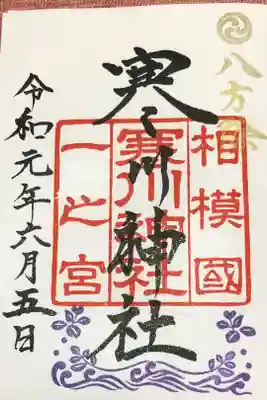 八方除
相模國
寒川神社
一之宮
寒川神社
令和元年六月五日